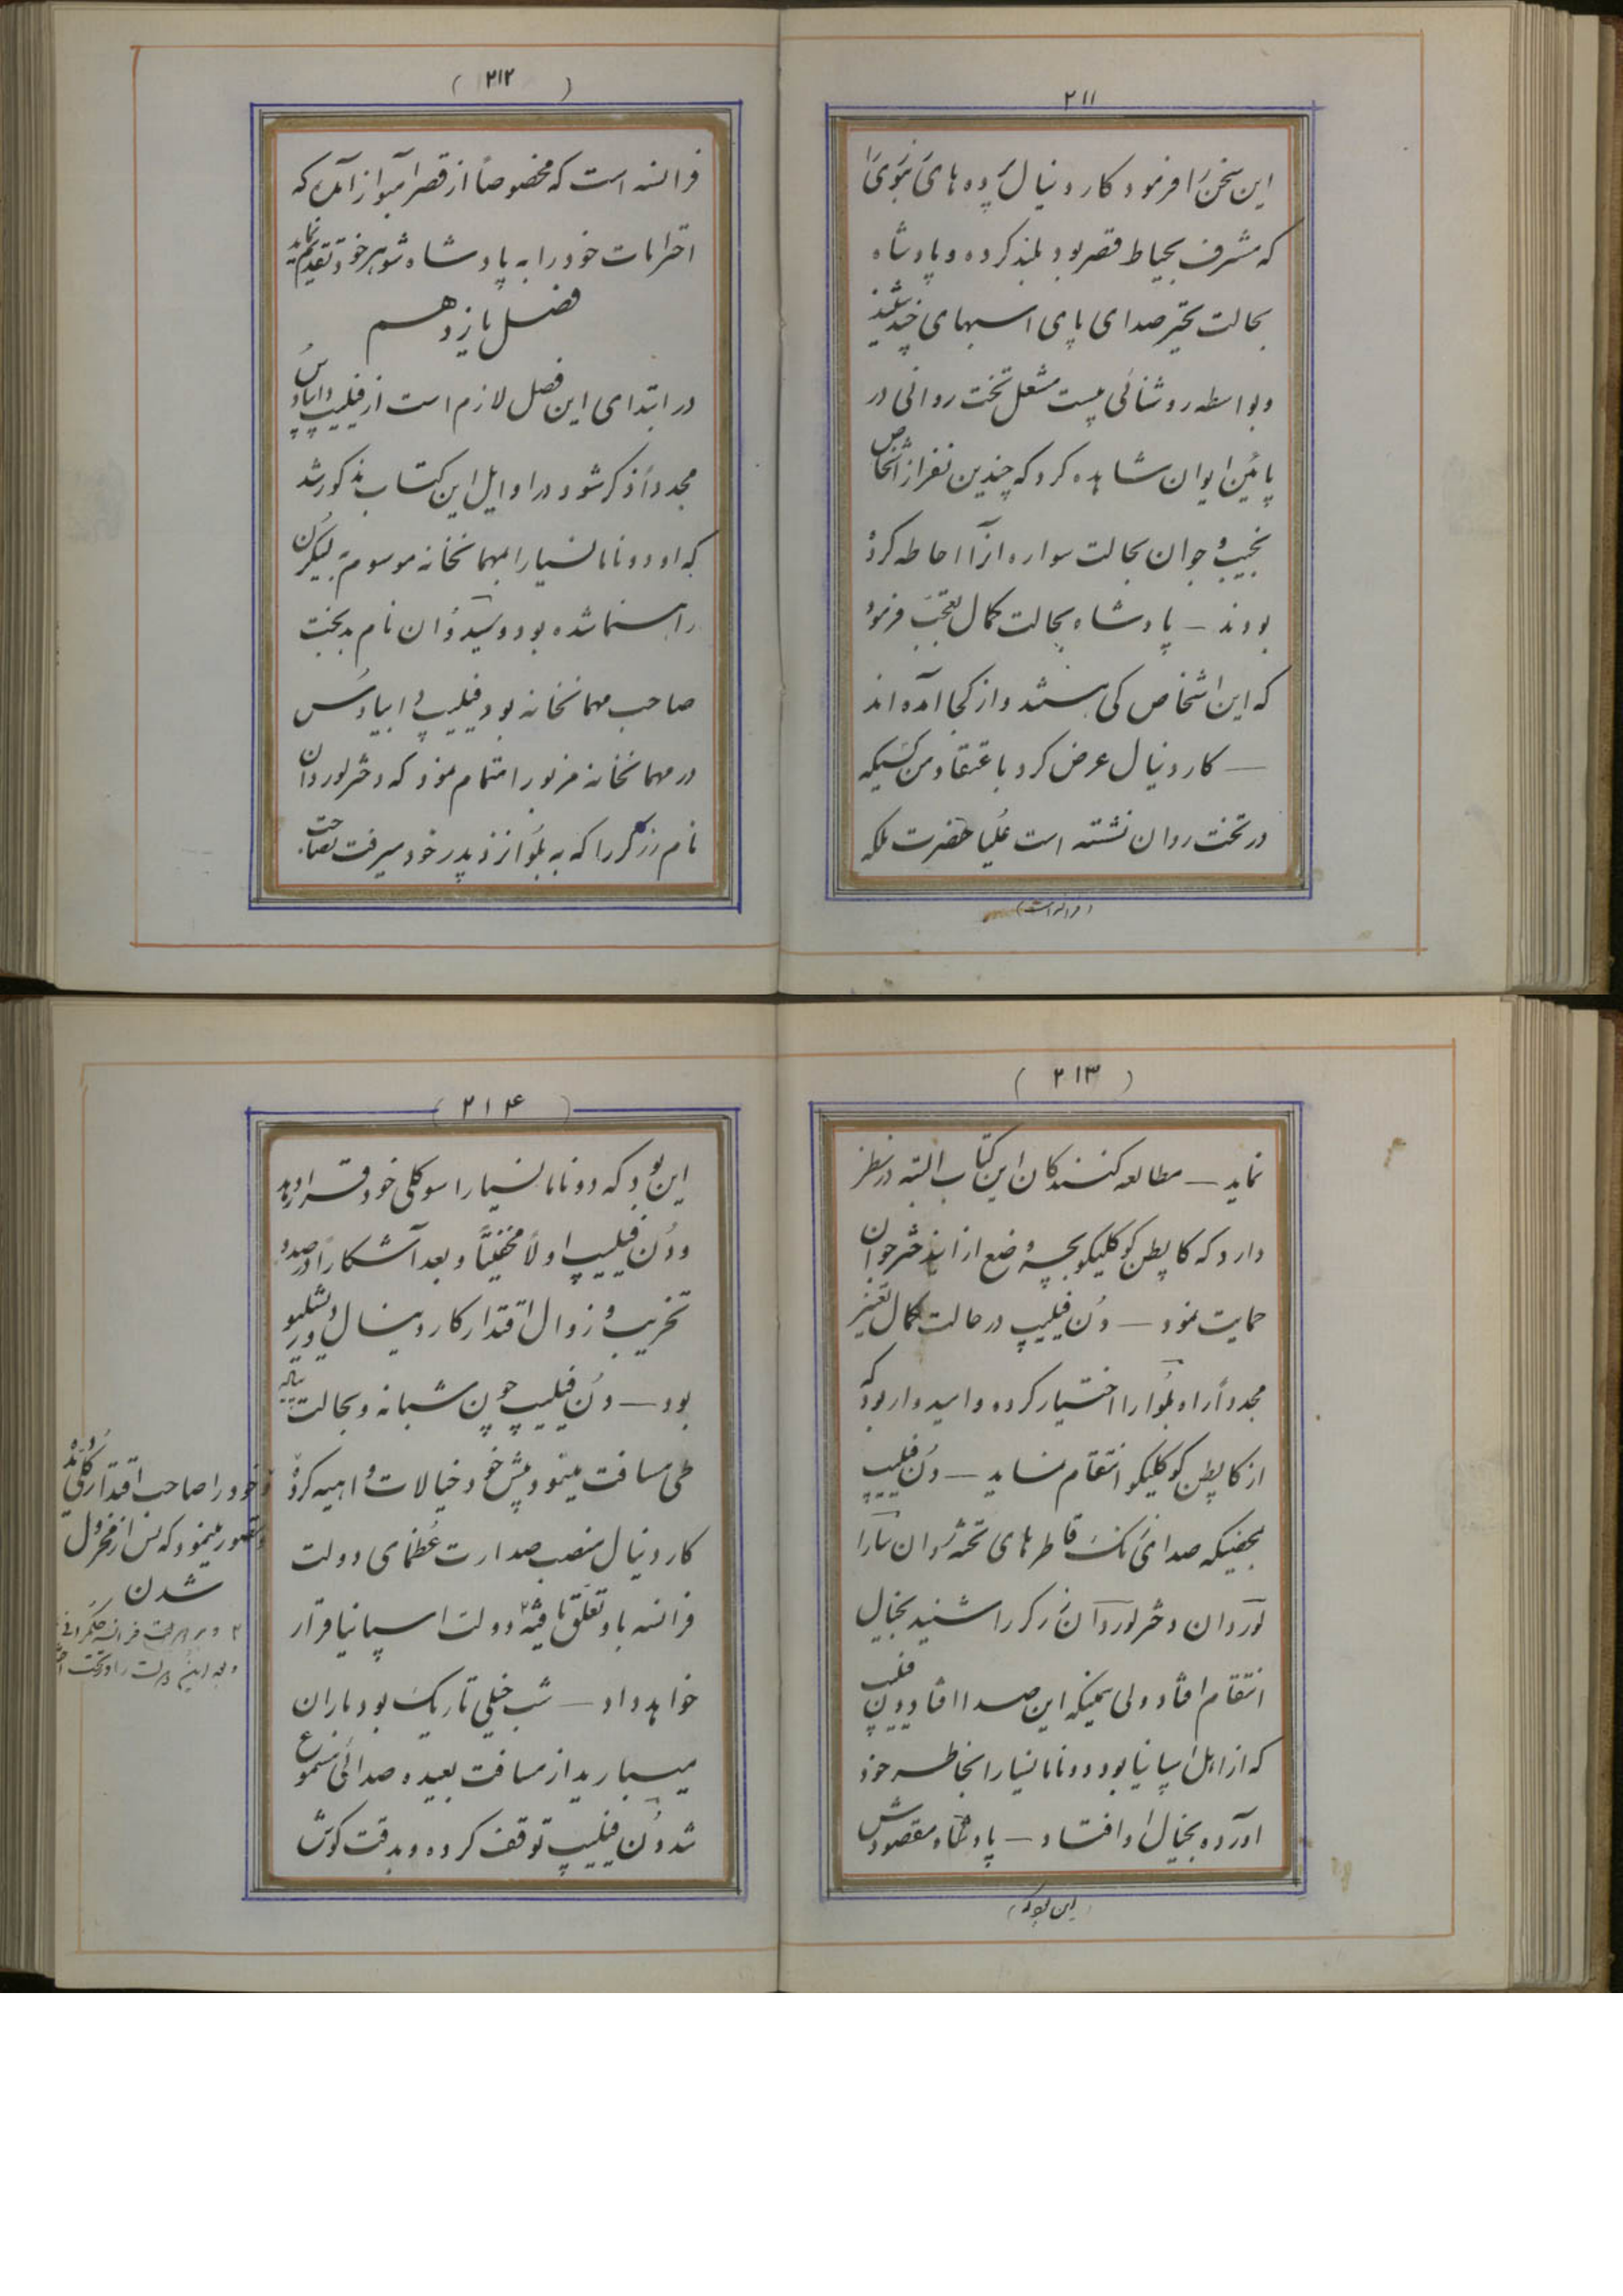 ۲۱۱
این سخن را فرمود کاردینال پرده های
که مشرف بحیاط قصر بود بلند کرده و پادشاه
بحالت تحیر صدای پای اسبهای چند شنید
و بواسطه روشنائی بیست مشعل تخت روانی در
پائین ایوان مشاهده کرد که چندین نفر از اشخاص
نجیب و جوان بحالت سواره آنرا احاطه کرده
بودند — پادشاه بحالت کمال تعجب فرمود
که این اشخاص کی هستند و از کجا آمده اند
— کاردینال عرض کرد باعتقاد من کسیکه
در تخت روان نشسته است علیا حضرت ملکه
(فرانسه است)
( ۲۱۲ )
فرانسه است که مخصوصاً از قصر آمبواز آمده که
احترامات خود را به پادشاه شوهر خود تقدیم نماید
فصل یازدهم
در ابتدای این فصل لازم است از فیلیپ دابیادُس
مجدداً ذکر شود در اوایل این کتاب مذکور شد
که او دونامانسیا را بمهمانخانه موسوم به
راهنما شده بود و نام بدبخت
صاحب مهمانخانه بود فیلیپ دابیادُس
در مهمانخانه مزبور اهتمام نمود که دختر لوردان
نام زرگر را که به بلوا نزد پدر خود میرفت تصاحب
( ۲۱۳ )
نماید — مطالعه کنندگان این کتاب البته در نظر
دارد که کاپطن کوکلیکو بچه وضع از این دختر جوان
حمایت نمود — دُن فیلیپ در حالت کمال تغیر
مجدداً راه بلوا را اختیار کرده و امیدوار بود که
از کاپطن کوکلیکو انتقام نماید — دُن فیلیپ
بمحضیکه صدای زنگ قاطرهای تخت روان
لوردان دختر لوردان زرگر را شنید بخیال
انتقام افتاد ولی همینکه این صدا افتاد دون فیلیپ
که از اهل اسپانیا بود دونامانسیا را بخاطر خود
آورده بخیال او افتاد — پادشاه مقصودش
(این بود که)
( ۲۱۴ )
این بود که دونامانسیا را سوکلی خود قرار دهد
و دُن فیلیپ اولاً مخفیاً و بعد آشکارا در صدد
تخریب و زوال اقتدار کاردینال دو ریشلیو
بود — دُن فیلیپ چون شبانه و بحالت
طی مسافت مینمود پیش خود خیالات واهیه کرده
کاردینال منصب صدارت عُظمای دولت
فرانسه باو تعلق یافته دولت اسپانیا قرار
خواهد داد — شب خیلی تاریک بود باران
میبارید از مسافت بعیده صدائی مسموع
شد دُن فیلیپ توقف کرده و بدقت گوش
خود را صاحب اقتدار کلی
تصور مینمود که پس از معزول
شدن